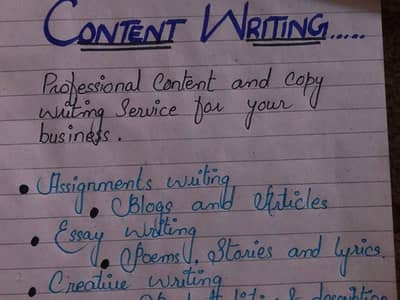 CONTENT WRITING.....
Professional Content and Copy
writing Service for your
business.
• Assignments writing
• Blogs and Articles
• Essay writing
• Poems, Stories and lyrics.
• Creative writing